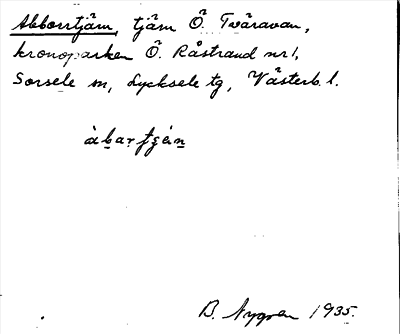 Abborrtjärn, tjärn Ö. Tväravan,
kronoparken Ö. Råstrand nr 1,
Sorsele sn, Lycksele tg, Västerb. l.
B. Nygren 1935.